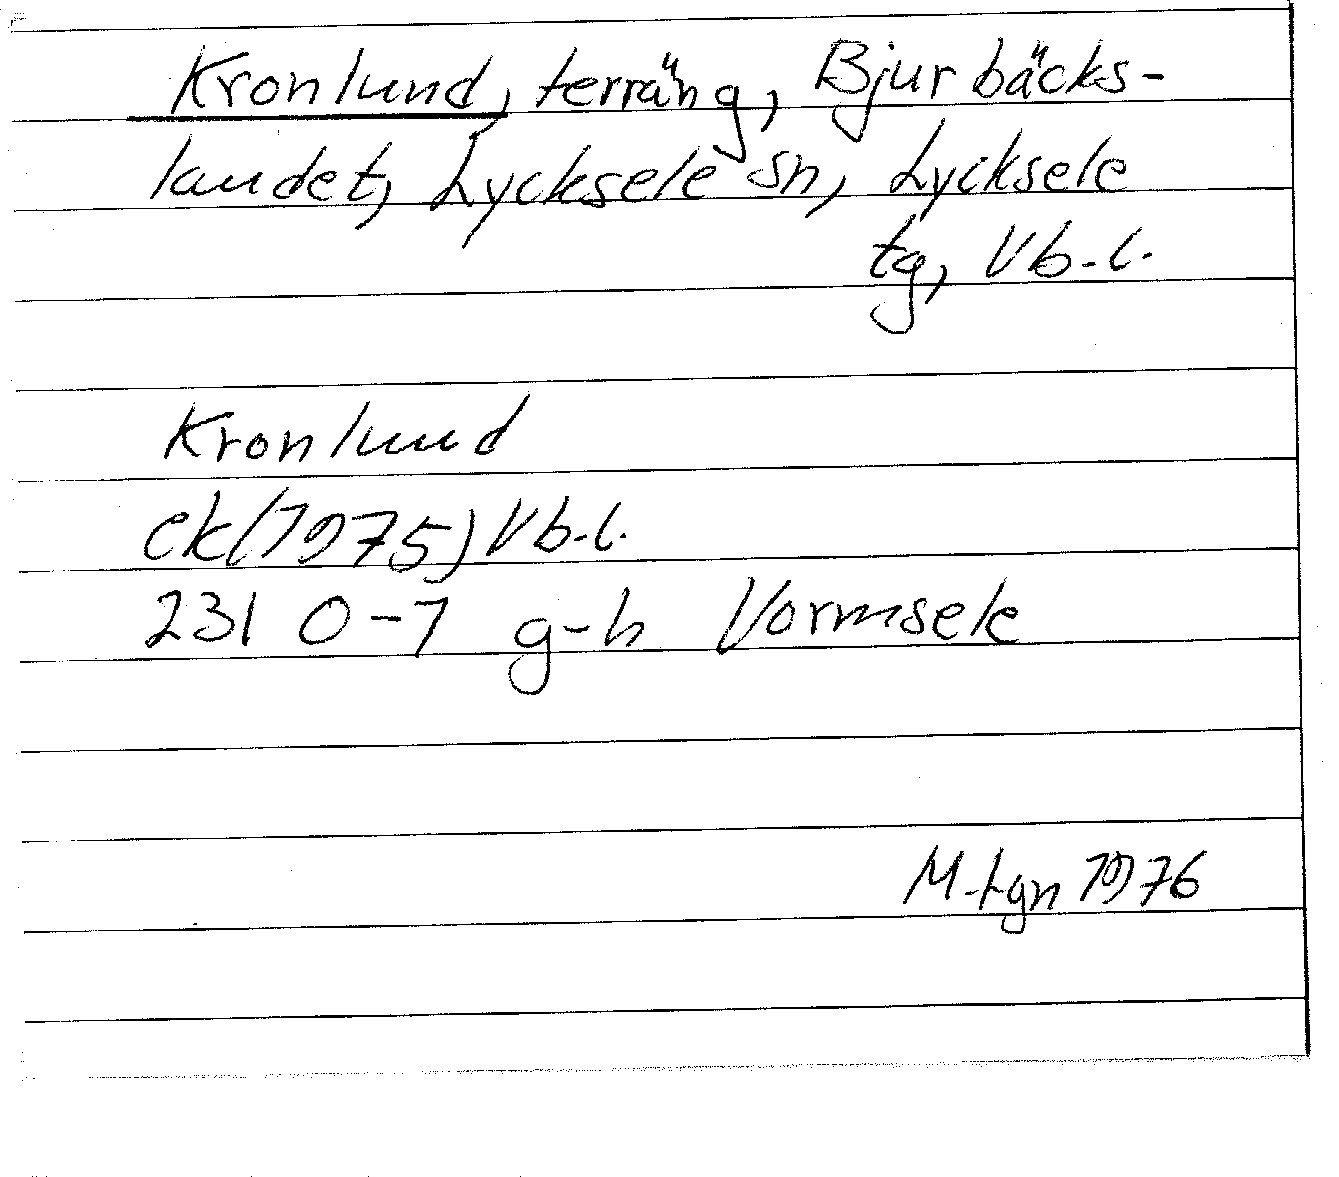 Kronlund, terräng, Bjurbäcks-
landet, Lycksele sn, Lycksele
tg, Vb.l.
Kronlund
ek(1975) Vb.l.
231 0-1 g-h Vormsele
M-tgn 1976